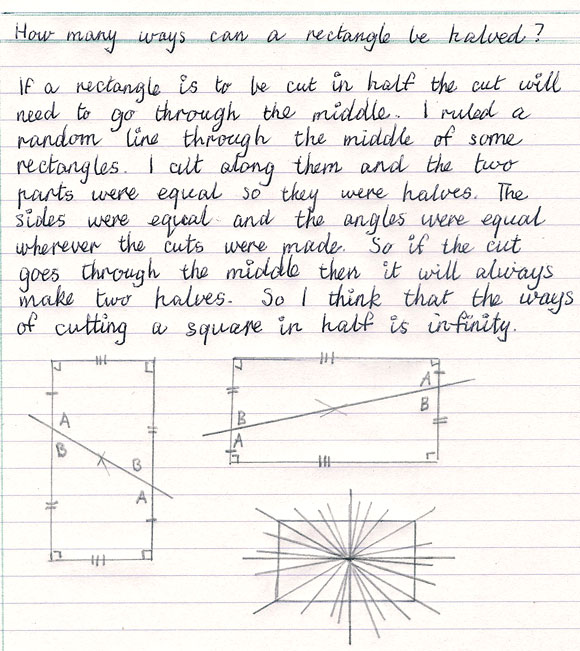 How many ways can a rectangle be halved?
If a rectangle is to be cut in half the cut will
need to go through the middle. I ruled a
random line through the middle of some
rectangles. I cut along them and the two
parts were equal so they were halves. The
sides were equal and the angles were equal
wherever the cuts were made. So if the cut
goes through the middle then it will always
make two halves. So I think that the ways
of cutting a square in half is infinity.
A
B
B
A
A
B
B
A